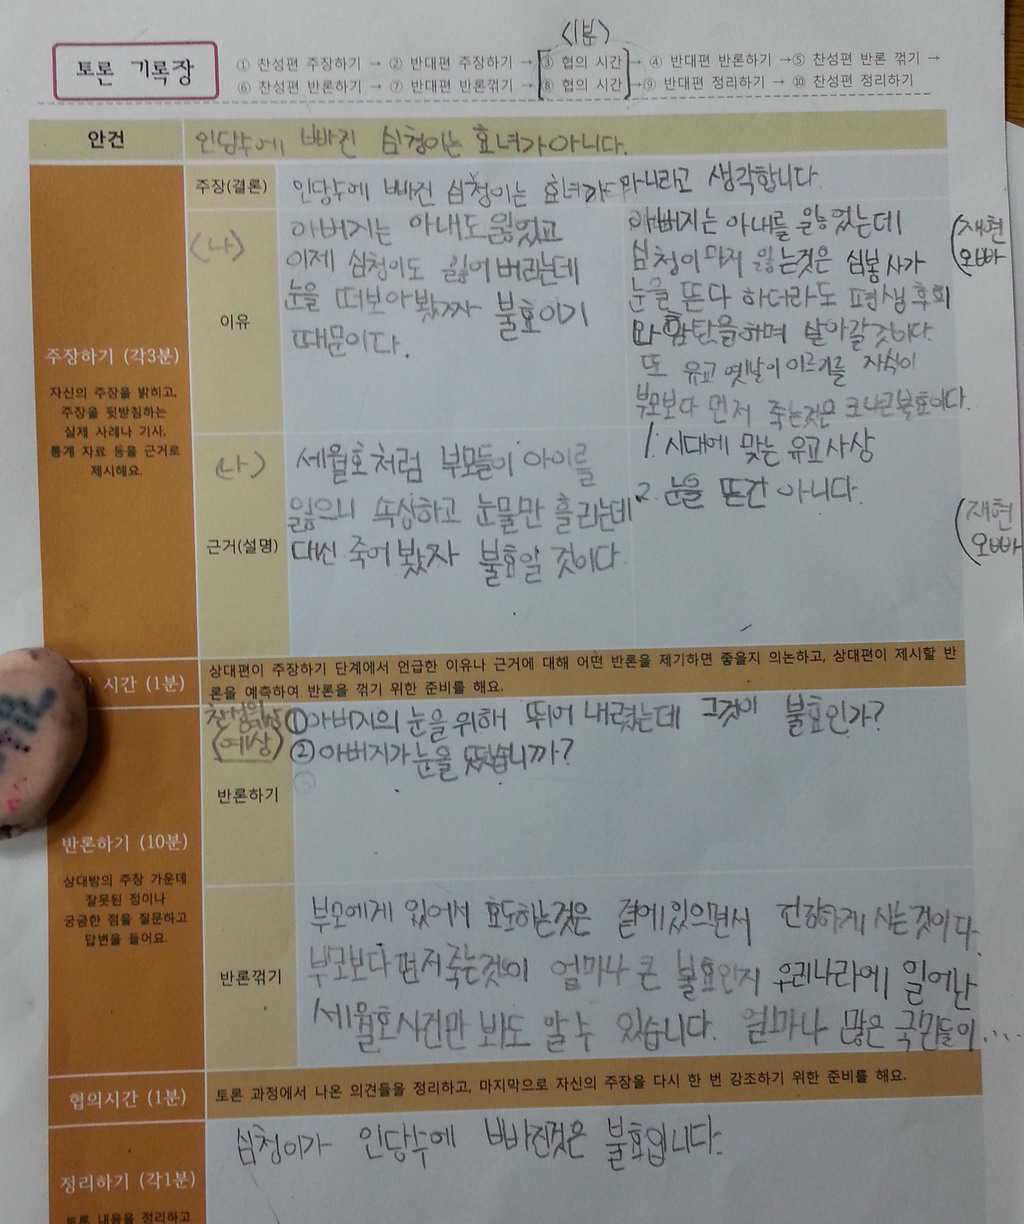 <1분>
토론 기록장
① 찬성편 주장하기 → ② 반대편 주장하기 → ③ 협의 시간 → ④ 반대편 반론하기 → ⑤ 찬성편 반론 꺾기 →
⑥ 찬성편 반론하기 → ⑦ 반대편 반론꺾기 → ⑧ 협의 시간 → ⑨ 반대편 정리하기 → ⑩ 찬성편 정리하기
안건
인당수에 빠진 심청이는 효녀가 아니다.
주장하기 (각3분)
자신의 주장을 밝히고,
주장을 뒷받침하는
실제 사례나 기사,
통계 자료 등을 근거로
제시해요.
주장(결론)
인당수에 빠진 심청이는 효녀가 아니라고 생각합니다.
(나)
이유
아버지는 아내도 잃었고
이제 심청이도 잃어버리는데
눈을 떠보아 봤짜 불효이기
때문이다.
아버지는 아내를 잃었는데
심청이마저 잃는것은 심봉사가
눈을 뜬다 하더라도 평생 후회
와 한탄을하며 살아갈것이다.
또 유교 옛날이 이르기를 자식이
부모보다 먼저 죽는것은 크나큰불효이다.
(재현
오빠
(나)
근거(설명)
세월호처럼 부모들이 아이를
잃으니 속상하고 눈물만 흘리는데
대신 죽어 봤자 불효일 것이다.
1. 시대에 맞는 유교사상
2. 눈을 뜬건 아니다.
(재현
오빠
시간 (1분)
상대편이 주장하기 단계에서 언급한 이유나 근거에 대해 어떤 반론을 제기하면 좋을지 의논하고, 상대편이 제시할 반
론을 예측하여 반론을 꺾기 위한 준비를 해요.
반론하기 (10분)
상대방의 주장 가운데
잘못된 점이나
궁금한 점을 질문하고
답변을 들어요.
(예상)
반론하기
① 아버지의 눈을 위해 뛰어 내렸는데 그것이 불효인가?
② 아버지가 눈을 떴습니까?
반론꺾기
부모에게 있어서 효도하는것은 곁에있으면서 건강하게 사는것이다.
부모보다 먼저 죽는것이 얼마나 큰 불효인지 우리나라에 일어난
세월호사건만 봐도 알 수 있습니다. 얼마나 많은 국민들이....
협의시간 (1분)
토론 과정에서 나온 의견들을 정리하고, 마지막으로 자신의 주장을 다시 한 번 강조하기 위한 준비를 해요.
정리하기 (각1분)
토론 내용을 정리하고
심청이가 인당수에 빠진것은 불효입니다.